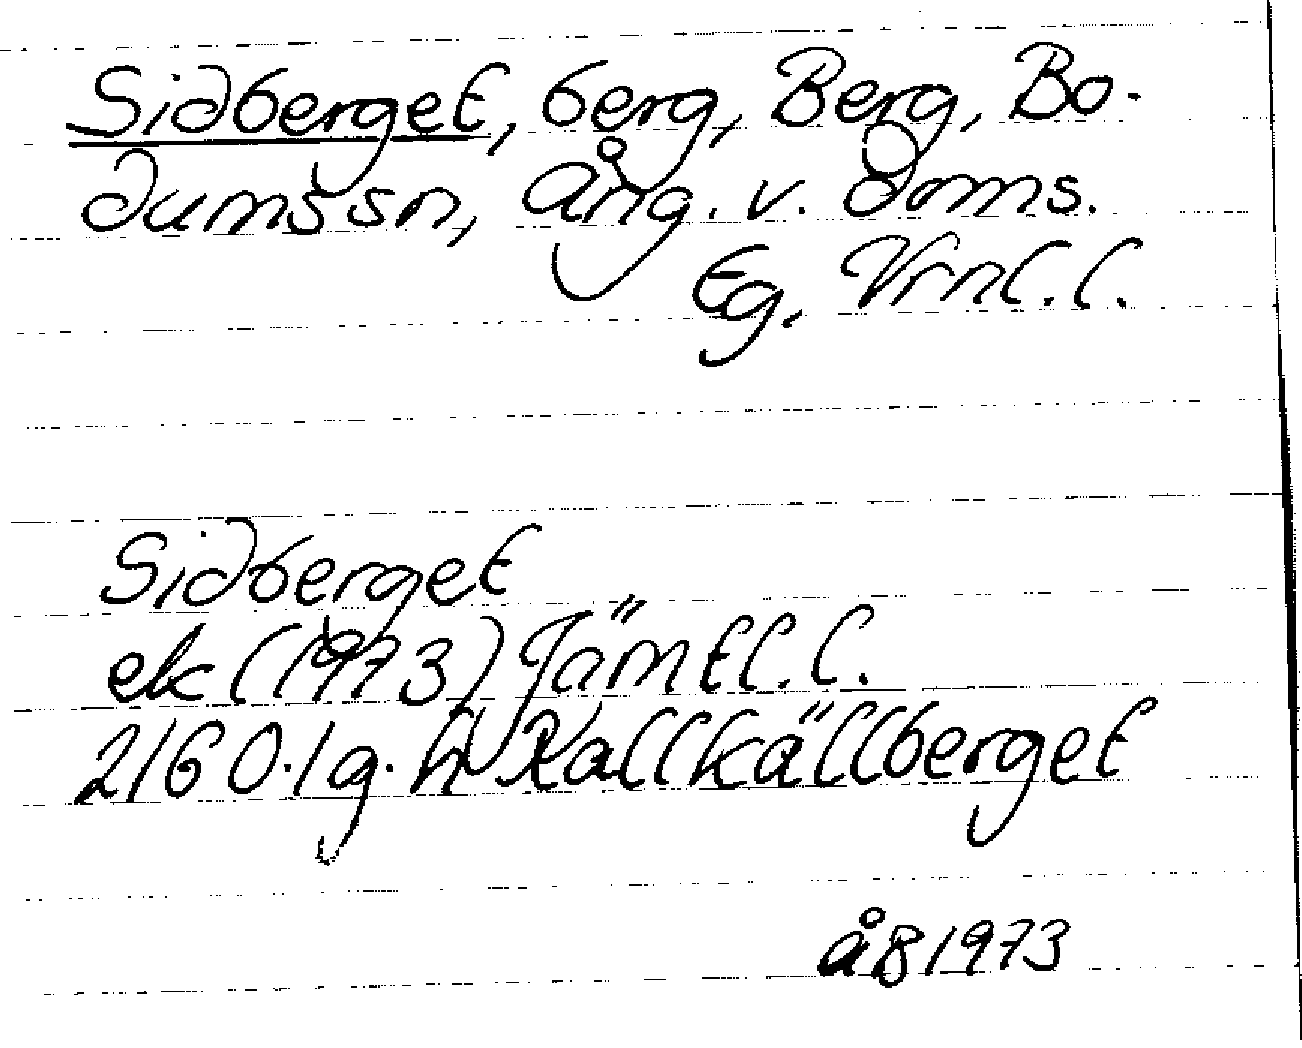 Sidberget, berg, Berg, Bo-
dumssn, Ång. v. doms.
Eg. Vrnl. l.
Sidberget
ek (1973) Jämtl. l.
2160.1 g. h Kallkällberget
åB 1973